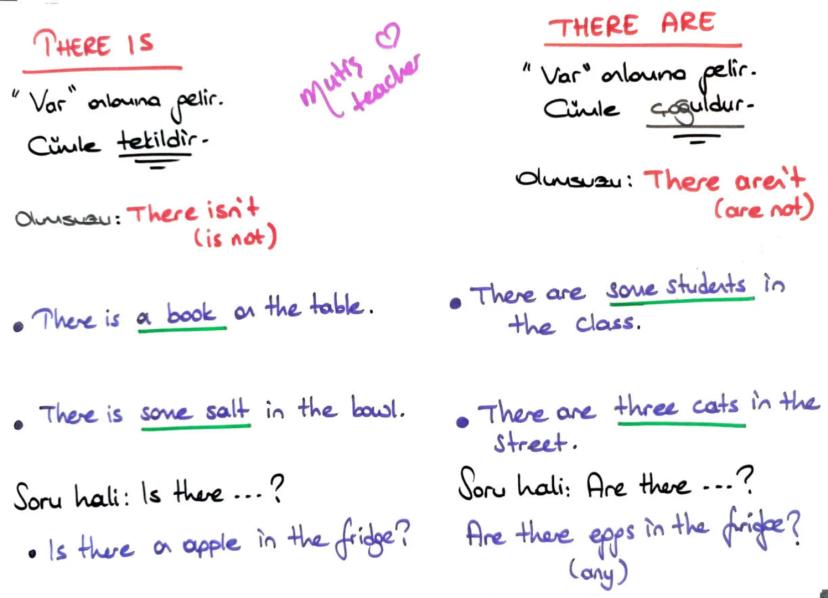 THERE IS
"Var" anlamına gelir.
Cümle tekildir.
Olumsuzu: There isn't
(is not)
• There is a book on the table.
• There is some salt in the bowl.
Soru hali: Is there ...?
• Is there an apple in the fridge?
Mutis
teacher
THERE ARE
"Var" anlamına gelir.
Cümle çoğuldur.
Olumsuzu: There aren't
(are not)
• There are some students in
the class.
• There are three cats in the
street.
Soru hali: Are there ...?
Are there eggs in the fridge?
(any)